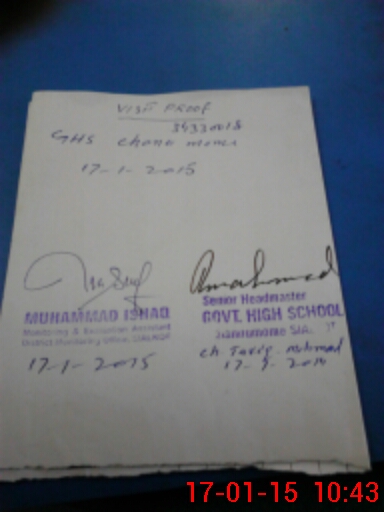 VISIT PROOF
34330018
GHS chano momi
17-1-2015
MUHAMMAD ISHAQ
Monitoring & Evaluation Assistant
District Monitoring Office, SIALKOT
17-1-2015
Amahmad
Senior Headmaster
GOVT. HIGH SCHOOL
ch Tariq mehmood
17-1-2015
17-01-15 10:43